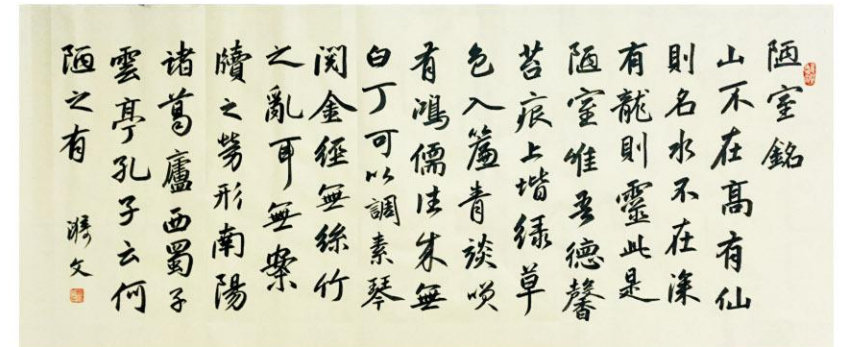 陋室銘
山不在高有仙
則名水不在深
有龍則靈此是
陋室唯吾德馨
苔痕上堦緑草
色入簾青談咲
有鴻儒往来無
白丁可以調素琴
閱金經無絲竹
之亂耳無案
牘之勞形南陽
諸葛廬西蜀子
雲亭孔子云何
陋之有
文